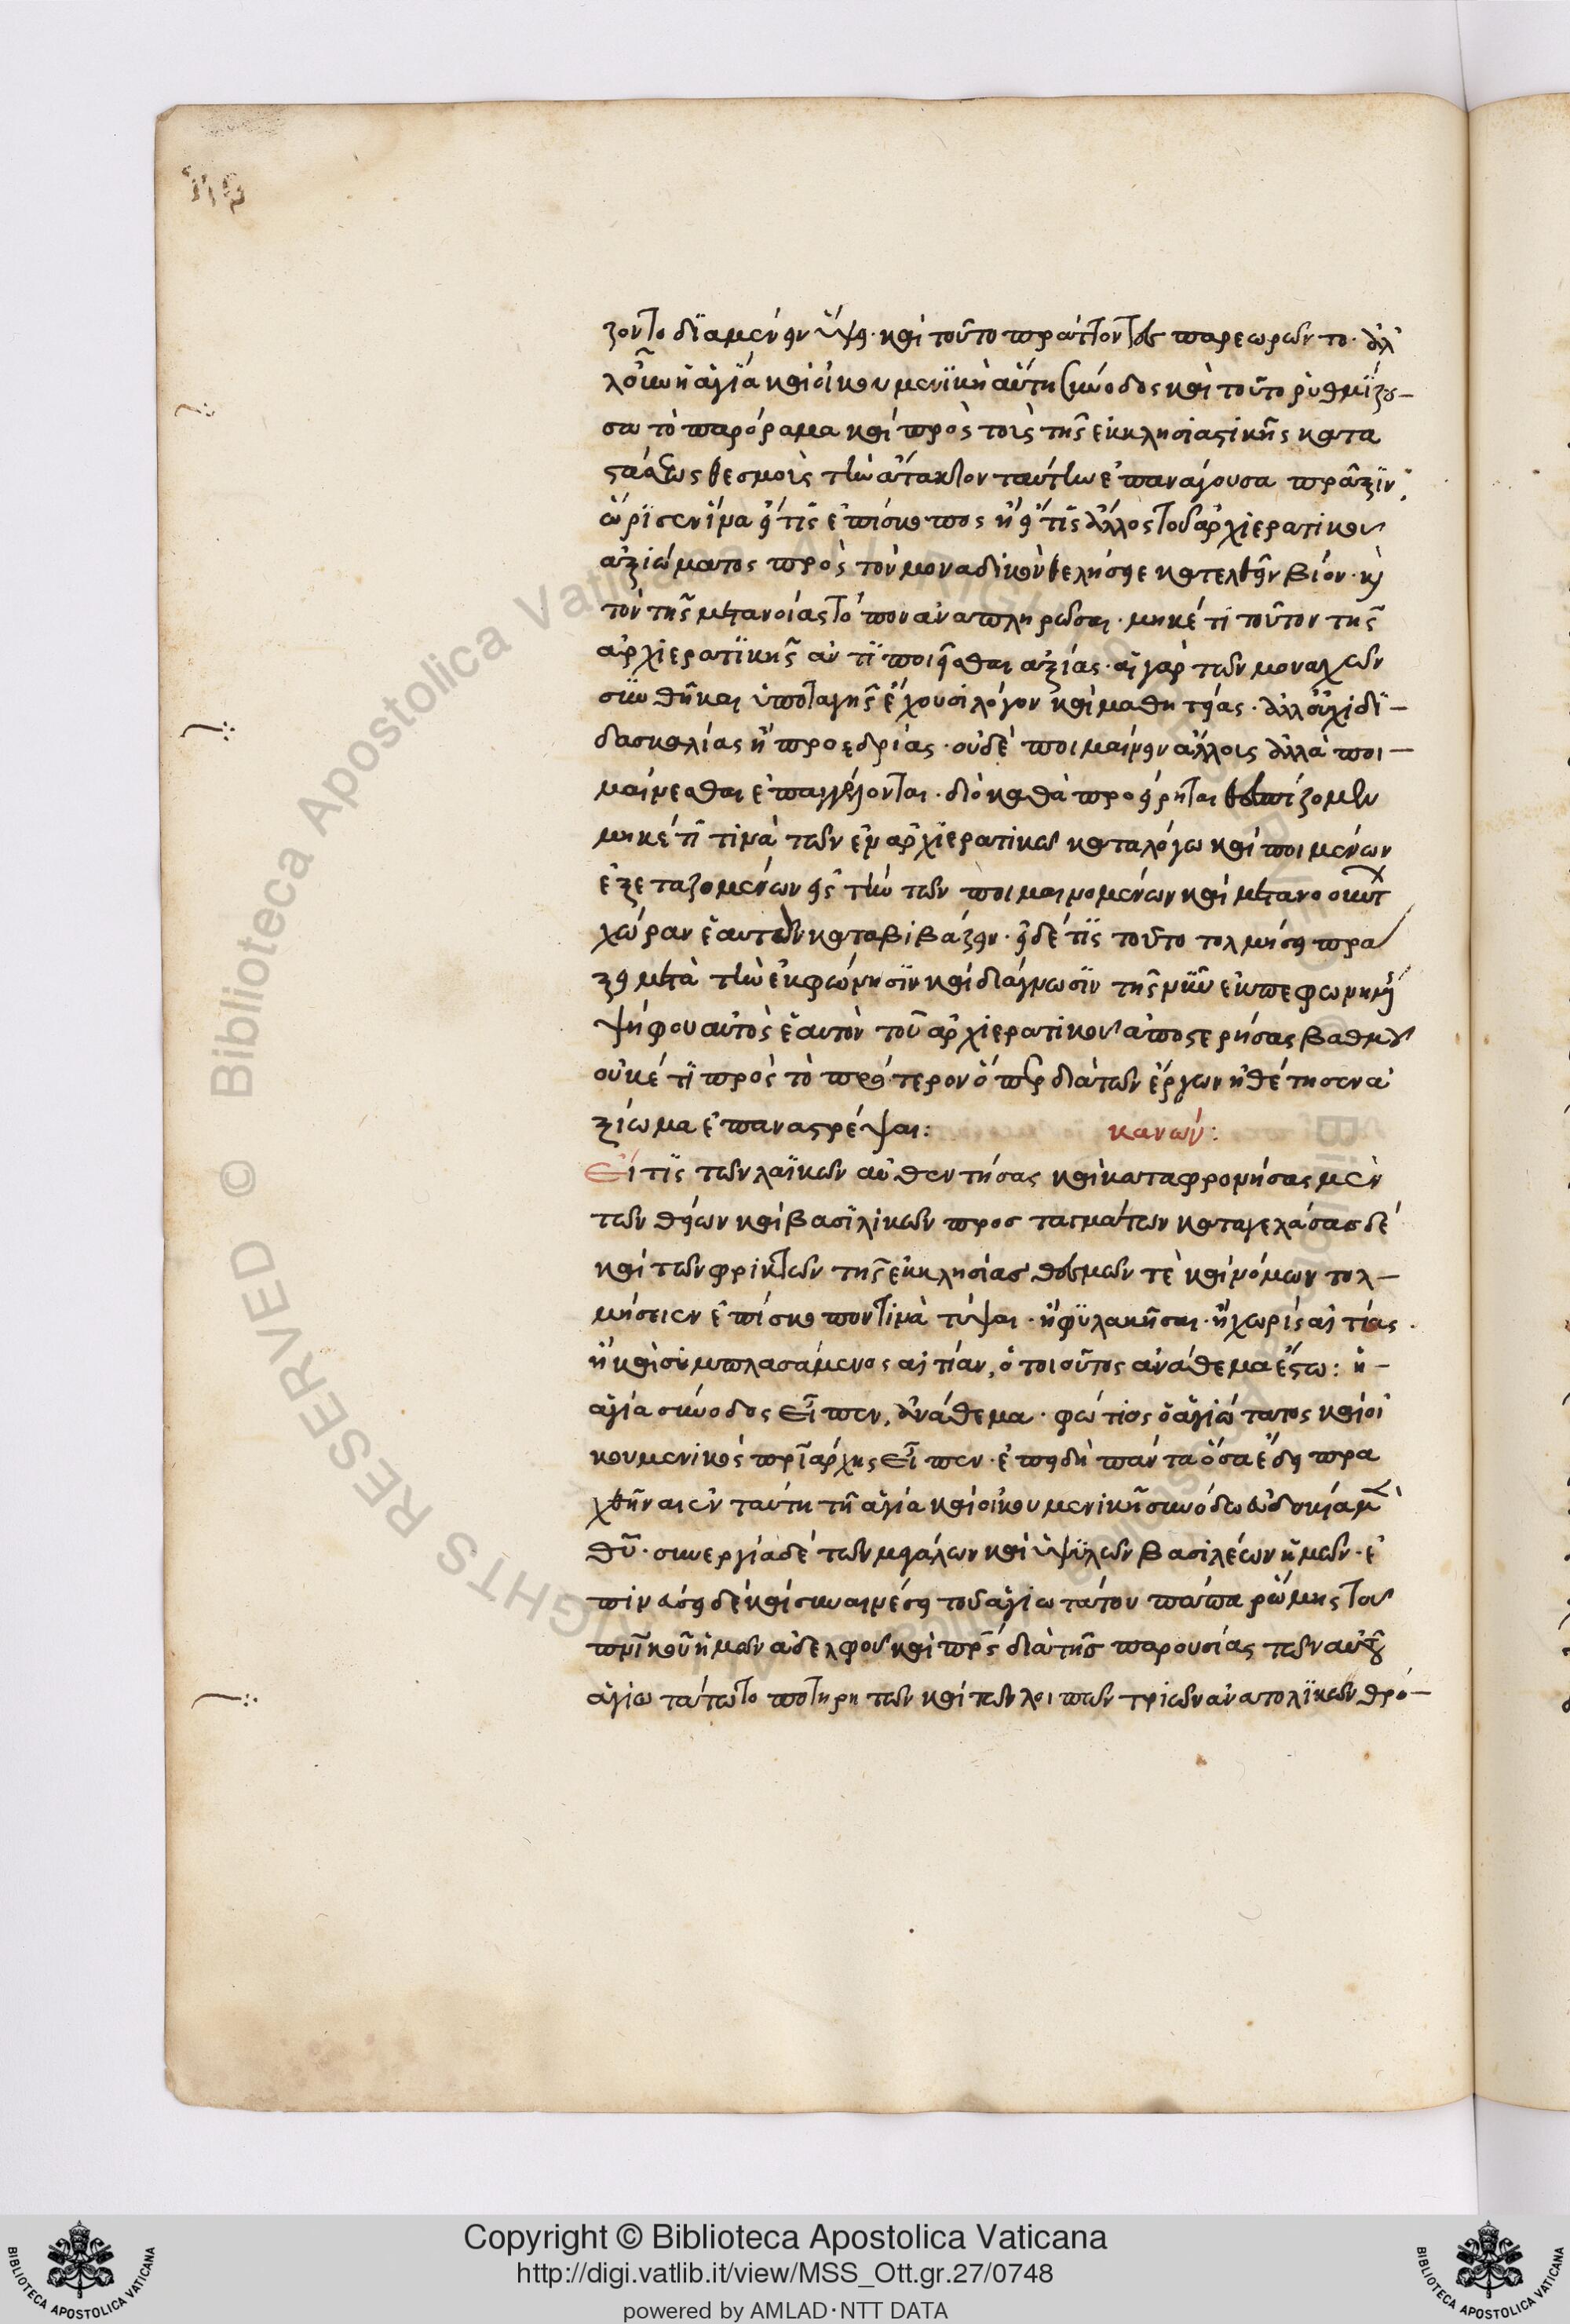 ζοντο διαμένειν ὕψει· καὶ τοῦτο πράττοντες παρεωρῶντο· ἀλ
λ' οὖν ἡ ἁγία καὶ οἰκουμενικὴ αὕτη σύνοδος καὶ τοῦτο ῥυθμίζου–
σα τὸ παρόραμα καὶ πρὸς τοὺς τῆς ἐκκλησιαστικῆς κατα
στάσεως θεσμοὺς τὴν ἄτακτον ταύτην ἐπανάγουσα πρᾶξιν,
ὥρισεν ἵνα εἴ τις ἐπίσκοπος ἢ εἴ τις ἄλλος τοῦ ἀρχιερατικοῦ
ἀξιώματος πρὸς τὸν μοναδικὸν θελήσειε κατελθεῖν βίον· κ(αὶ)
τὸν τῆς μετανοίας τόπον ἀναπληρῶσαι· μηκέτι τοῦτον τῆς
ἀρχιερατικῆς ἀντιποιεῖσθαι ἀξίας· αἱ γὰρ τῶν μοναχῶν
συνθῆκαι ὑποταγῆς ἔχουσι λόγον καὶ μαθητείας· ἀλλ' οὐχὶ δι–
δασκαλίας ἢ προεδρίας· οὐδὲ ποιμαίνειν ἄλλοις ἀλλὰ ποι–
μαίνεσθαι ἐπαγγέλονται· διὸ καθὰ προείρηται θεσπίζομεν
μηκέτι τινὰ τῶν ἐν ἀρχιερατικῶ καταλόγω καὶ ποιμένων
ἐξεταζομένων εἰς τὴν τῶν ποιμαινομένων καὶ μετανοούντ
χώραν ἑαυτὸν καταβιβάζειν· εἰ δέ τις τοῦτο τολμήσει πρα
ξει μετὰ τὴν ἐκφώνησιν καὶ διάγνωσιν τῆς νῦν ἐκπεφωνημ
ψήφου αὐτὸς ἑαυτὸν τοῦ ἀρχιερατικοῦ ἀποστερήσας βαθμοῦ
οὐκέτι πρὸς τὸ πρότερον ὅπερ διὰ τῶν ἔργων ἠθέτησεν ἀ
ξίωμα ἐπαναστρέψαι: κανών:
Εἴ τις τῶν λαϊκῶν αὐθεντήσας καὶ καταφρονήσας μὲν
τῶν θείων καὶ βασιλικῶν προσταγμάτων καταγελάσας δὲ
καὶ τῶν φρικτῶν τῆς ἐκκλησίας θεσμῶν τὲ καὶ νόμων τολ–
μήσειεν ἐπίσκοπον τινὰ τύψαι· ἢ φυλακῆσαι· ἢ χωρὶς αἰτίας·
ἢ καὶ συμπλασάμενος αἰτίαν, ὁ τοιοῦτος ἀνάθεμα ἔστω: ἡ–
ἁγία σύνοδος εἶπεν, ἀνάθεμα· φώτιος ὁ ἁγιώτατος καὶ οἰ
κουμενικὸς πριάρχης εἶπεν· ἐπειδὴ πάντα ὅσα ἔδει πρα
χθῆναι ἐν ταύτη τῆ ἁγία καὶ οἰκουμενικῆ συνόδω εὐδοκία μὲν
θῦ· συνεργία δὲ τῶν μεγάλων καὶ ὑψιλῶν βασιλέων ἡμῶν· ἐ
πινεύσει δὲ καὶ συναινέσει τοῦ ἁγιωτάτου πάπα ῥώμης τοῦ
πνικοῦ ἡμῶν ἀδελφοῦ καὶ πρς διὰ τῆς παρουσίας τῶν αὐτοῦ
ἁγιωτάτω τοποτηρητῶν καὶ τῶν λοιπῶν τριῶν ἀνατολικῶν θρό–